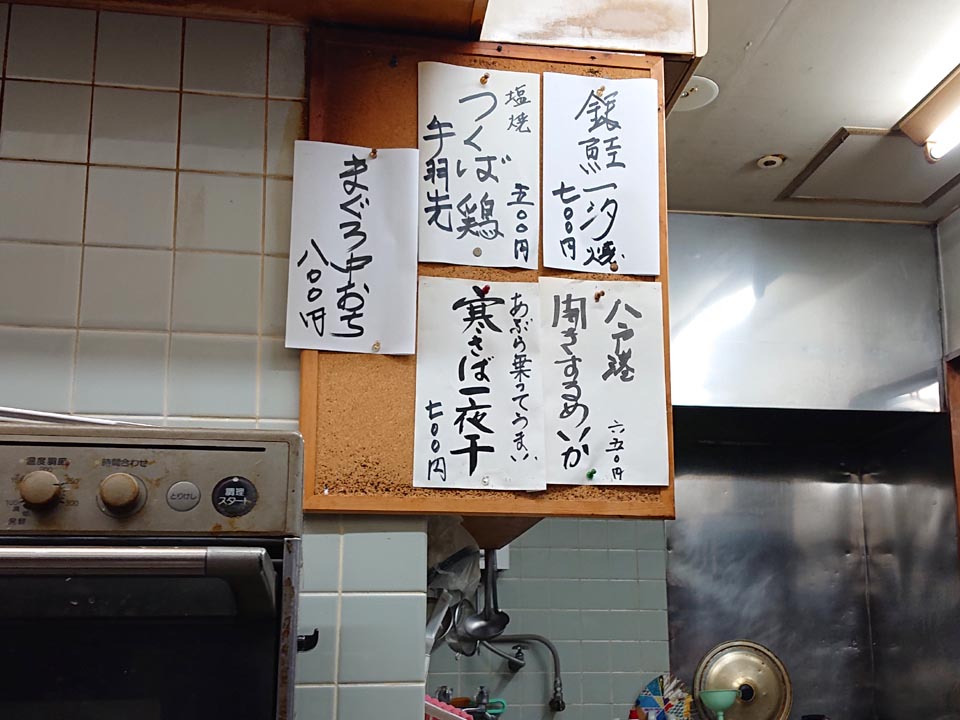 銀鮭
一汐焼
七〇〇円
塩焼
つくば鶏
手羽先
五〇〇円
まぐろ中おち
八〇〇円
八戸港
開きするめいか
六五〇円
あぶら乗ってうまい
寒さば一夜干
七〇〇円
温度調節
時間合わせ
とりけし
調理
スタート
発酵